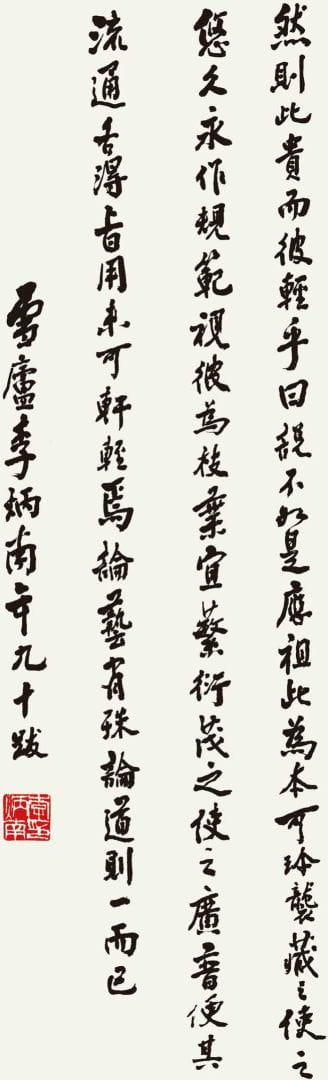 然則此貴而彼輕乎曰說不如是應祖此為本可珍襲藏之使之
悠久永作規範視彼為枝葉宜繁衍茂之使之廣普便其
流通各得用未可軒輊焉論藝有殊論道則一而已
雪廬李炳南年九十跋